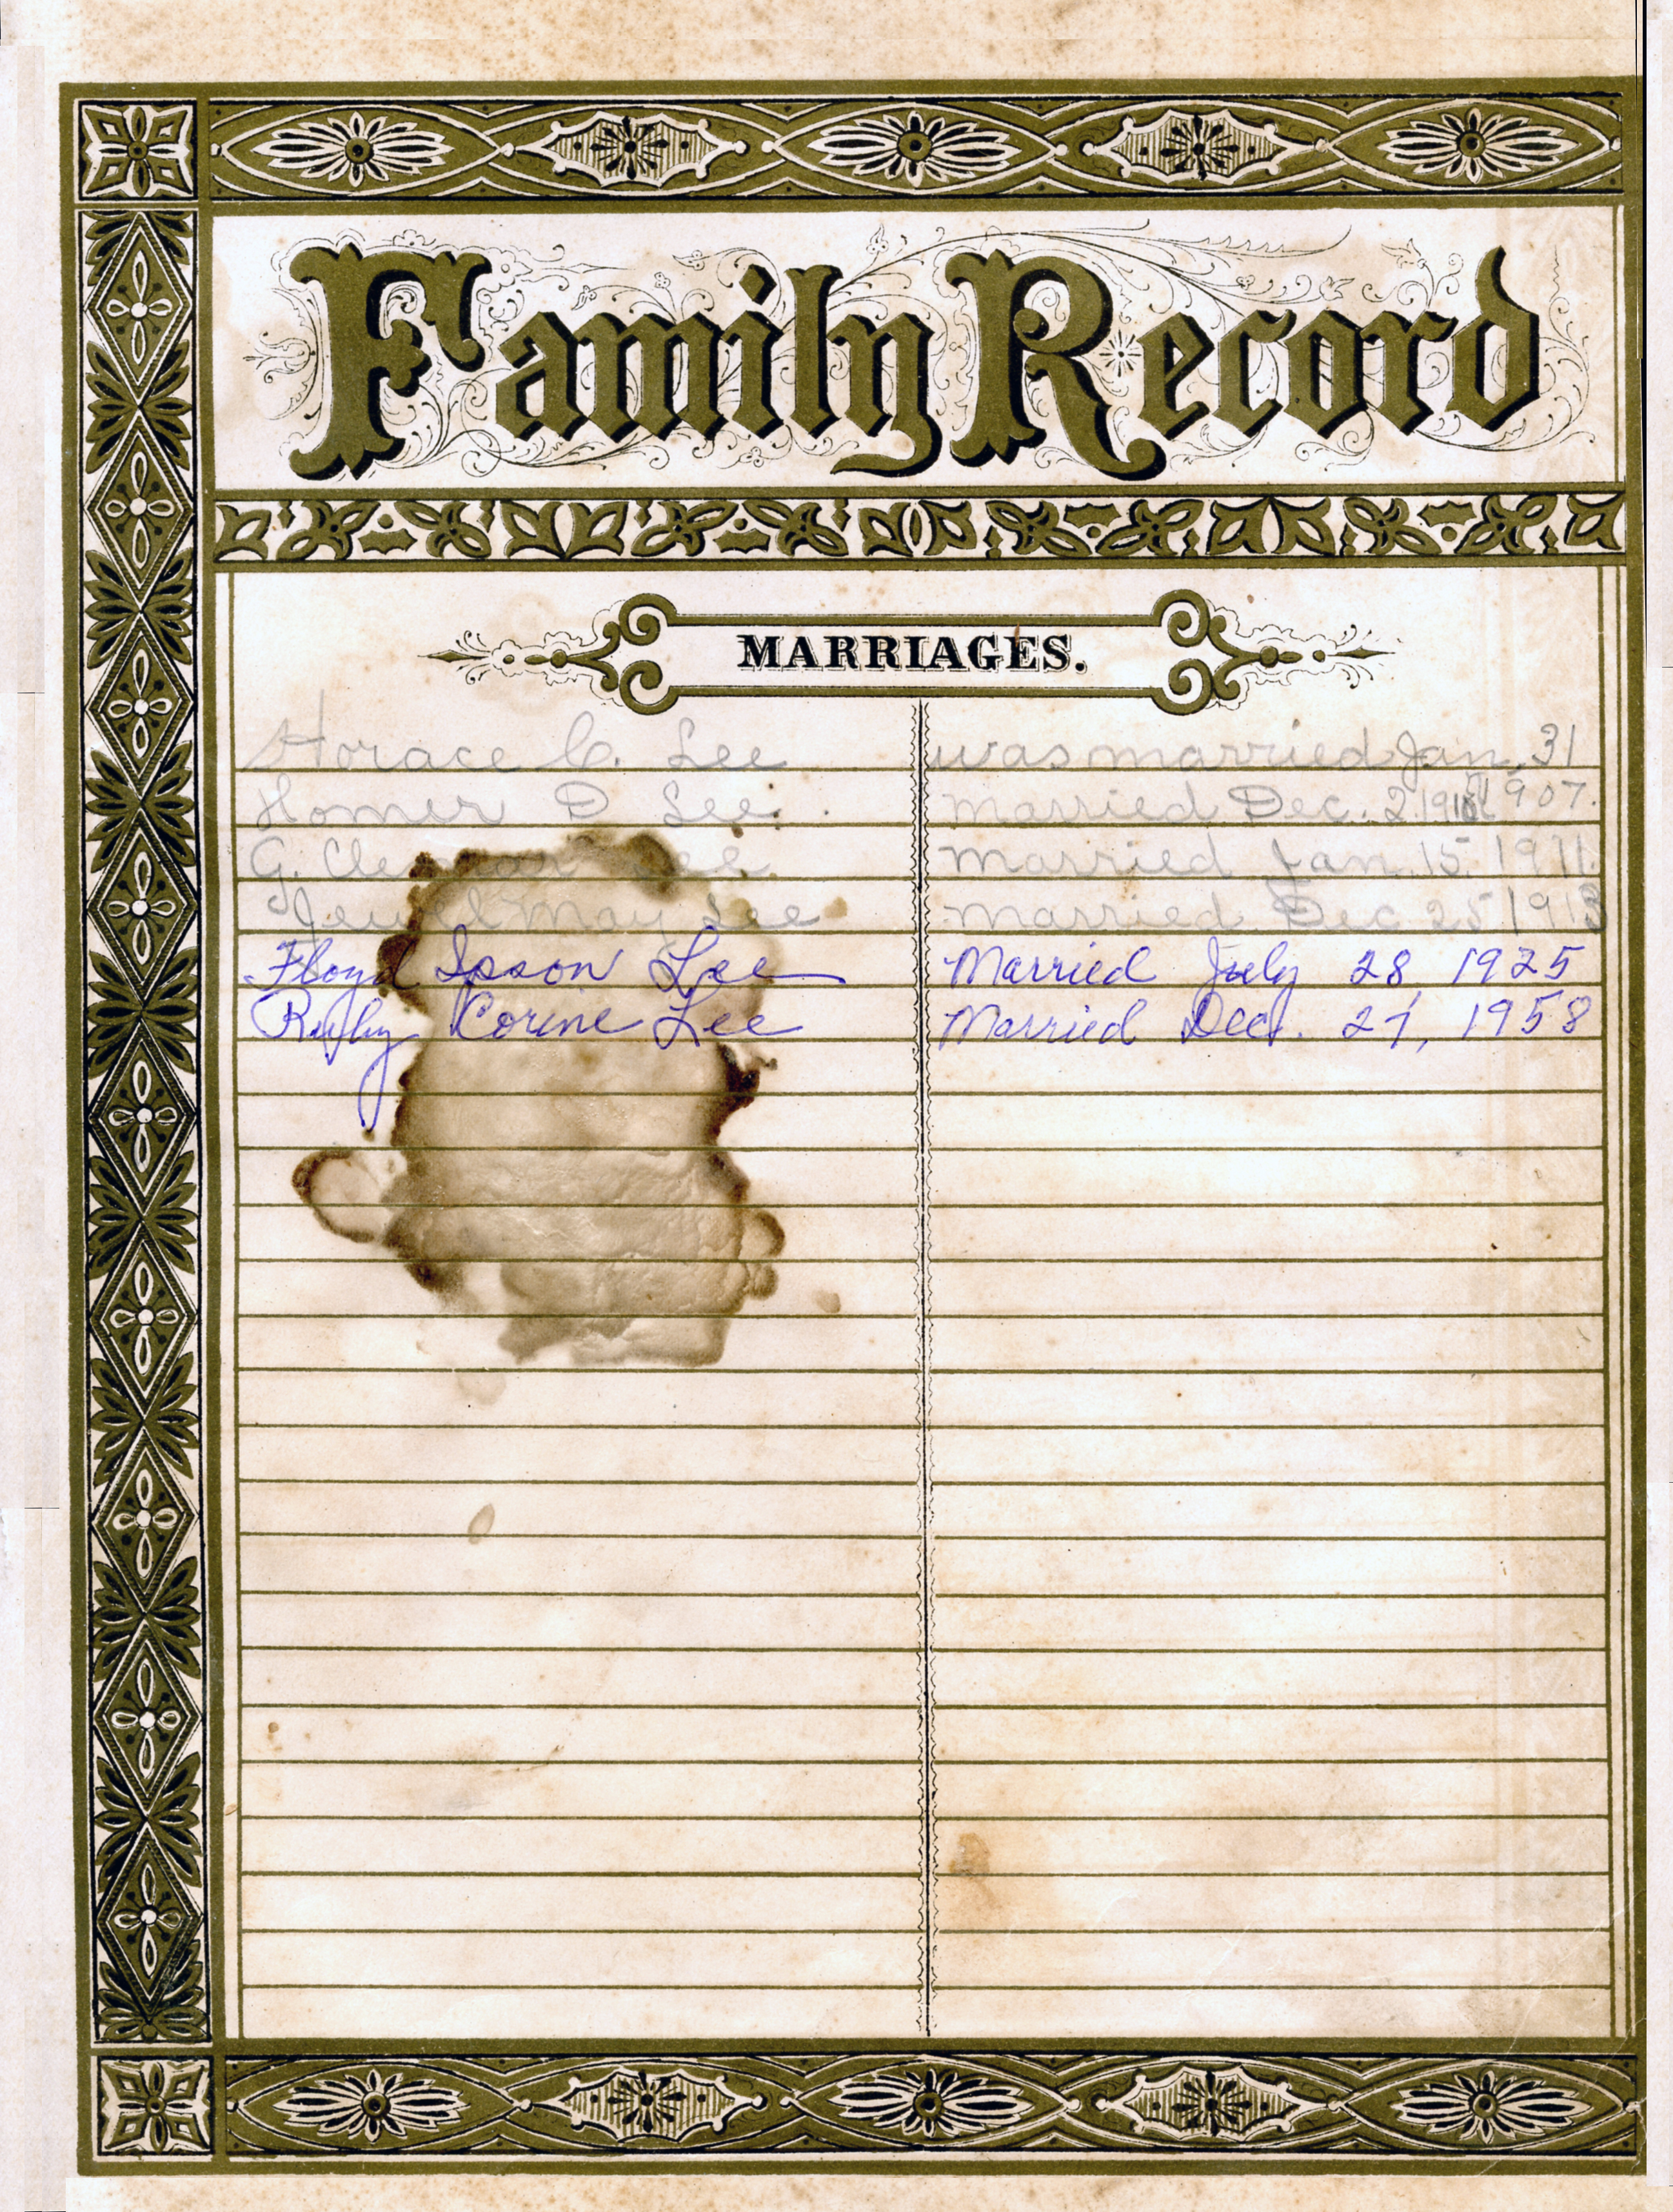 Family Record
MARRIAGES.
Horace C. Lee was married Jan. 31
1907.
Homer D Lee. Married Dec. 2
G. Lee Married Jan. 15 1911.
Jewel May Lee Married Dec 25 1913
Floyd Ipson Lee Married July 28, 1925
Ruby Corine Lee Married Dec. 27, 1958